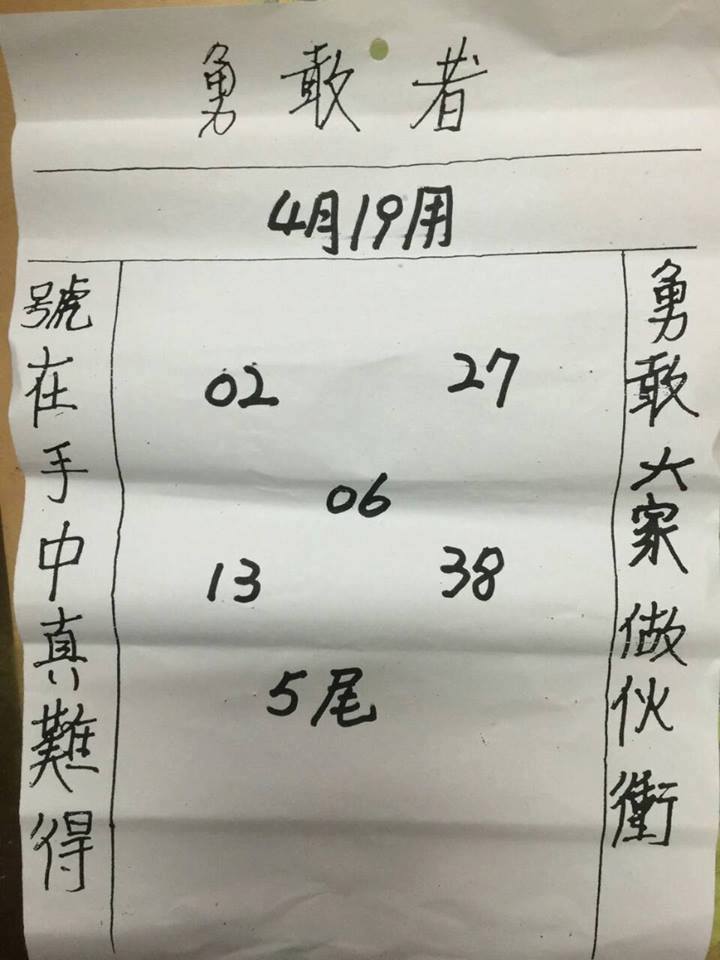 勇敢者
4月19用
勇敢大家做伙衝
02 27
06
13 38
5尾
號在手中真難得